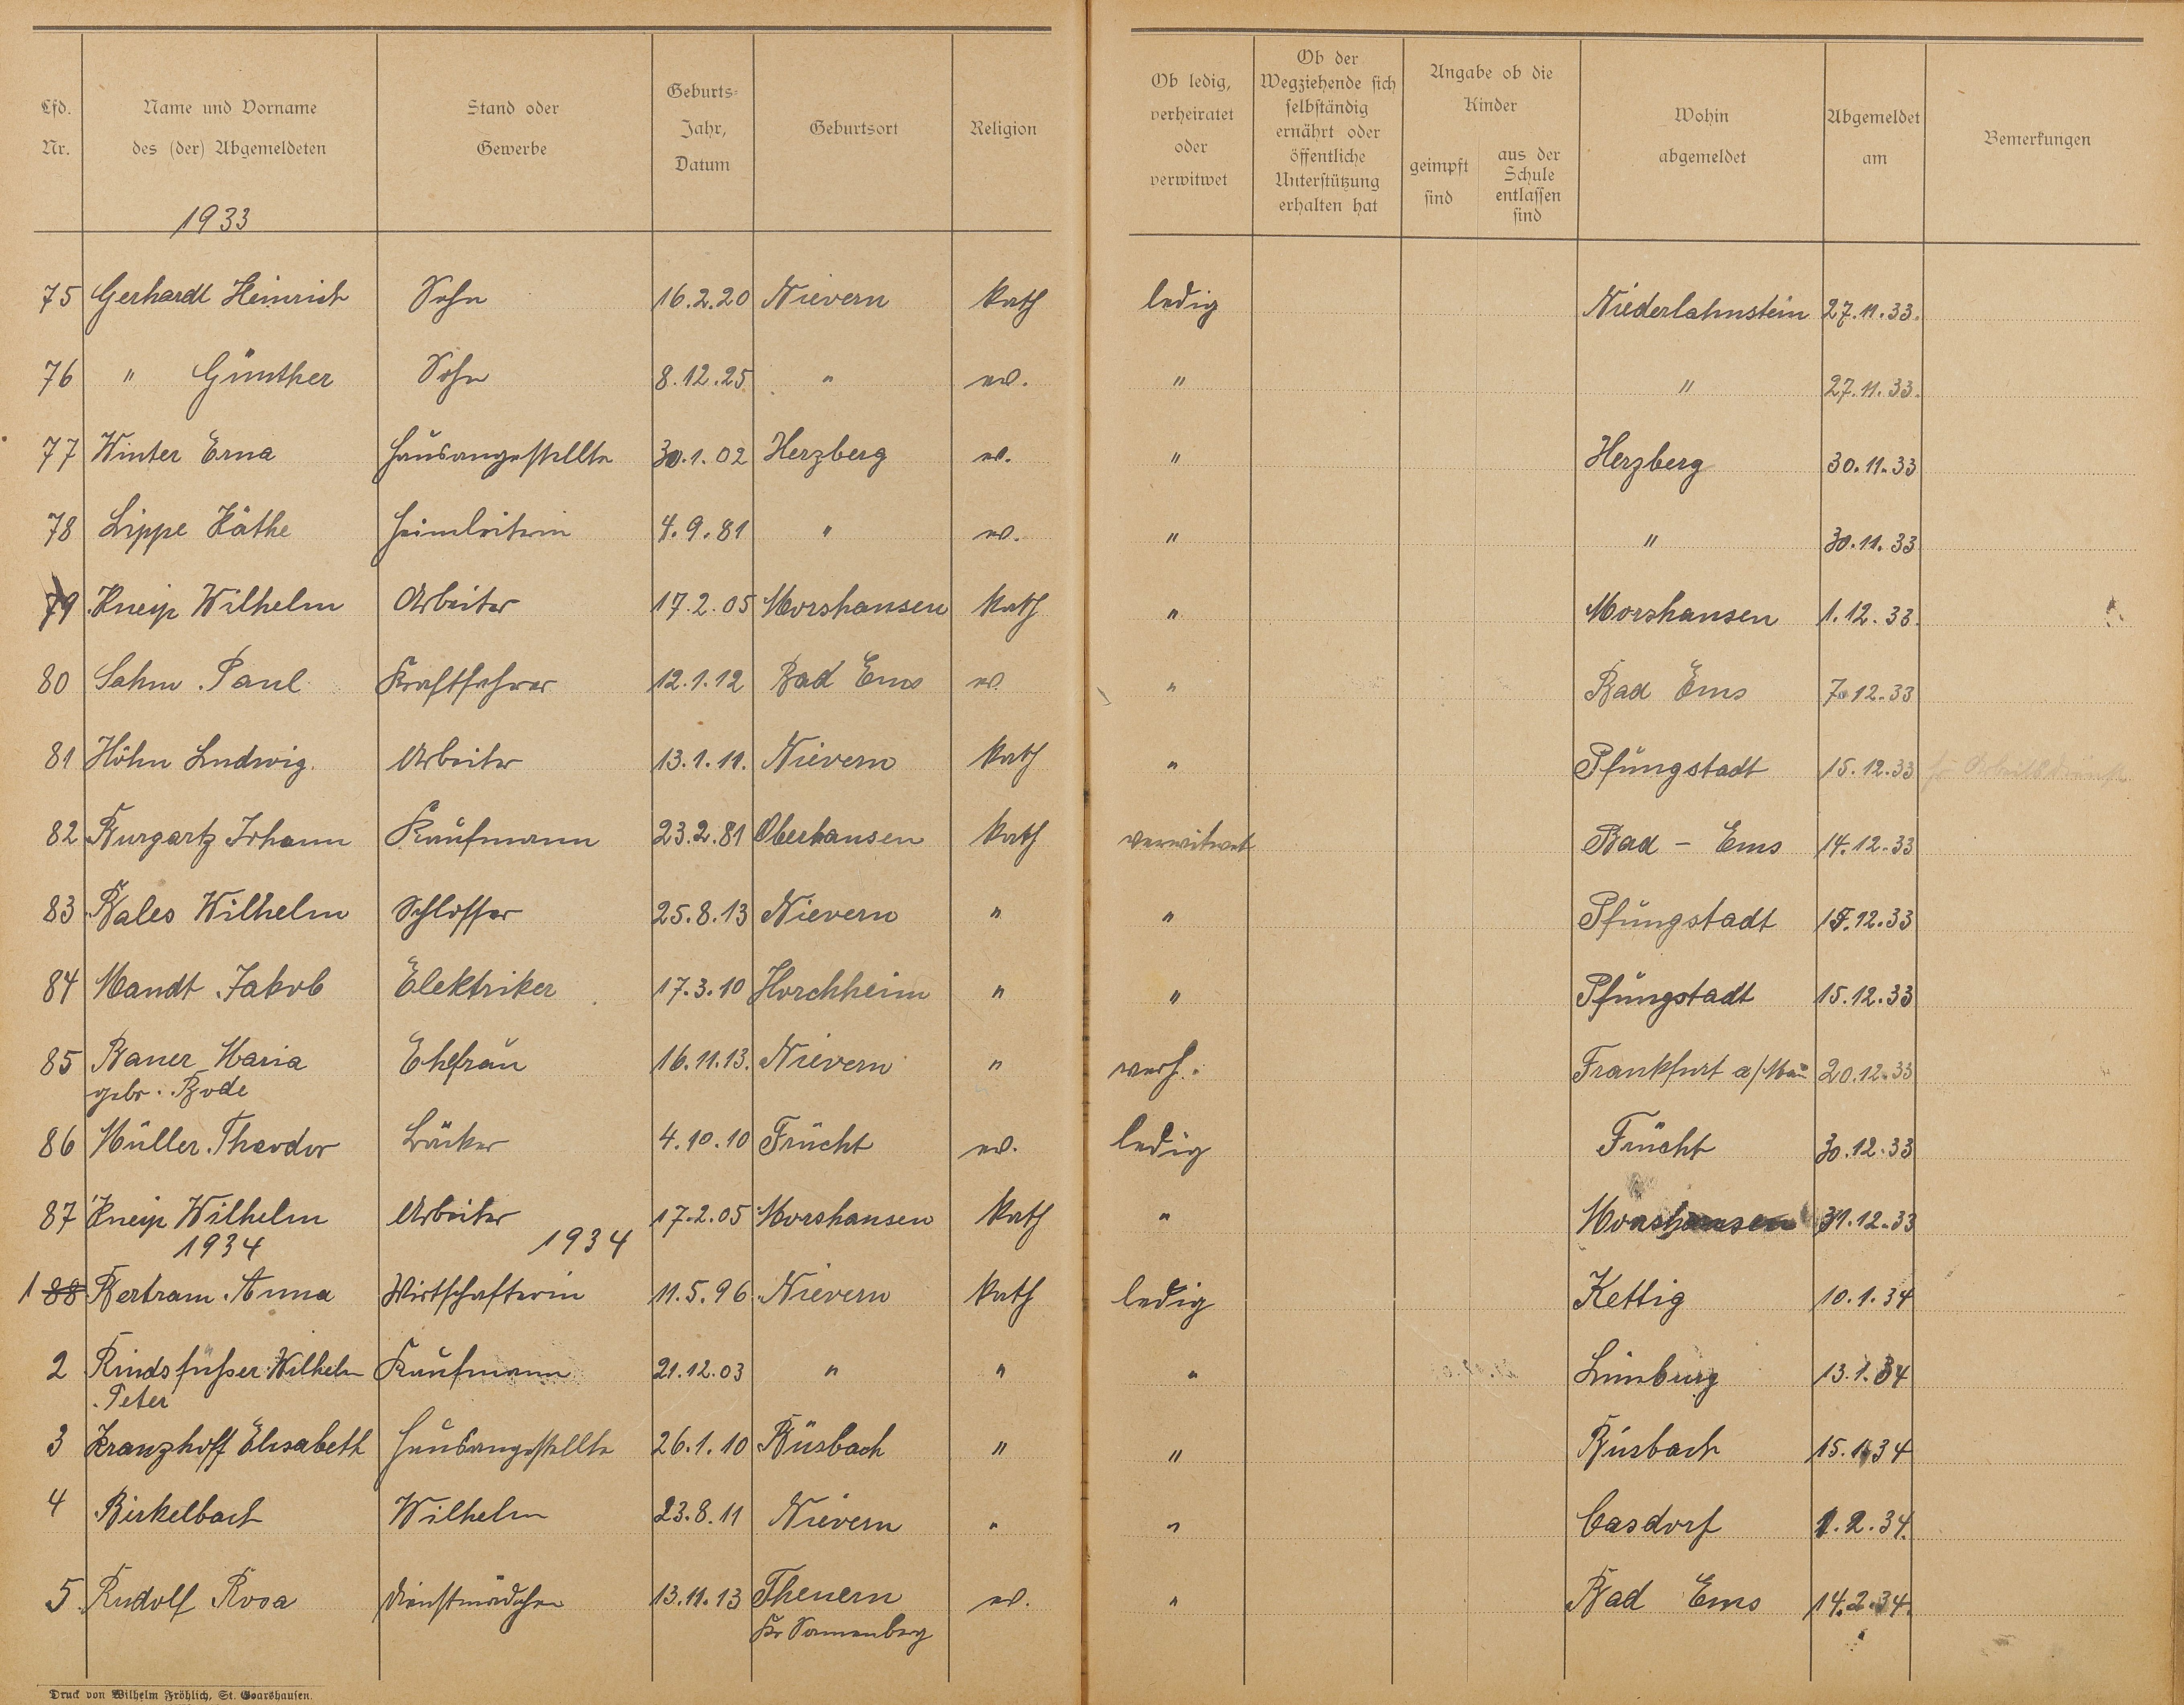 Lfd. Nr. | Name und Vorname des (der) Abgemeldeten | Stand oder Gewerbe | Geburts-Jahr, Datum | Geburtsort | Religion | Ob ledig, verheiratet oder verwitwet | Ob der Wegziehende sich selbständig ernährt oder öffentliche Unterstützung erhalten hat | Angabe ob die Kinder geimpft sind | aus der Schule entlassen sind | Wohin abgemeldet | Abgemeldet am | Bemerkungen
1933
75 Gerhardt Heinrich Sohn 16.2.20 Nievern kath ledig Niederlahnstein 27.11.33.
76 " Günther Sohn 8.12.25 " ev. " " 27.11.33.
77 Winter Erna Hausangestellte 30.1.02 Herzberg ev. " Herzberg 30.11.33
78 Lippe Käthe Heimleiterin 4.9.81 " ev. " " 30.11.33
79 Kneip Wilhelm Arbeiter 17.2.05 Morshausen kath " Morshausen 1.12.33.
80 Sahm Paul Kraftfahrer 12.1.12 Bad Ems ev. " Bad Ems 7.12.33
81 Höhn Ludwig. Arbeiter 13.1.11. Nievern kath " Pfungstadt 15.12.33
82 Burgartz Johann Kaufmann 23.2.81 Oberhausen kath verwitwet Bad - Ems 14.12.33
83 Bales Wilhelm Schlosser 25.8.13 Nievern " " Pfungstadt 15.12.33
84 Mandt Jakob Elektriker 17.3.10 Horchheim " " Pfungstadt 15.12.33
85 Bauer Maria Ehefrau 16.11.13. Nievern " verh. Frankfurt a/Main 20.12.33
gebr. Bode
86 Müller Theodor Bäcker 4.10.10 Frücht ev. ledig Frücht 30.12.33
87 Kneip Wilhelm Arbeiter 17.2.05 Morshausen kath " Morshausen 31.12.33
1934 1934
1 88 Bertram Anna Wirtschafterin 11.5.96 Nievern kath ledig Kettig 10.1.34
2 Rindsfüsser Wilhelm Kaufmann 21.12.03 " " " Limburg 13.1.34
Peter
3 Kranzhoff Elisabeth Hausangestellte 26.1.10 Büsbach " " Büsbach 15.1.34
4 Birkelbach Wilhelm 23.8.11 Nievern " " Casdorf 1.2.34.
5 Rudolf Rosa Dienstmädchen 13.11.13 Theuern ev. " Bad Ems 14.2.34.
Kr Sonnenberg
Druck von Wilhelm Fröhlich, St. Goarshausen.